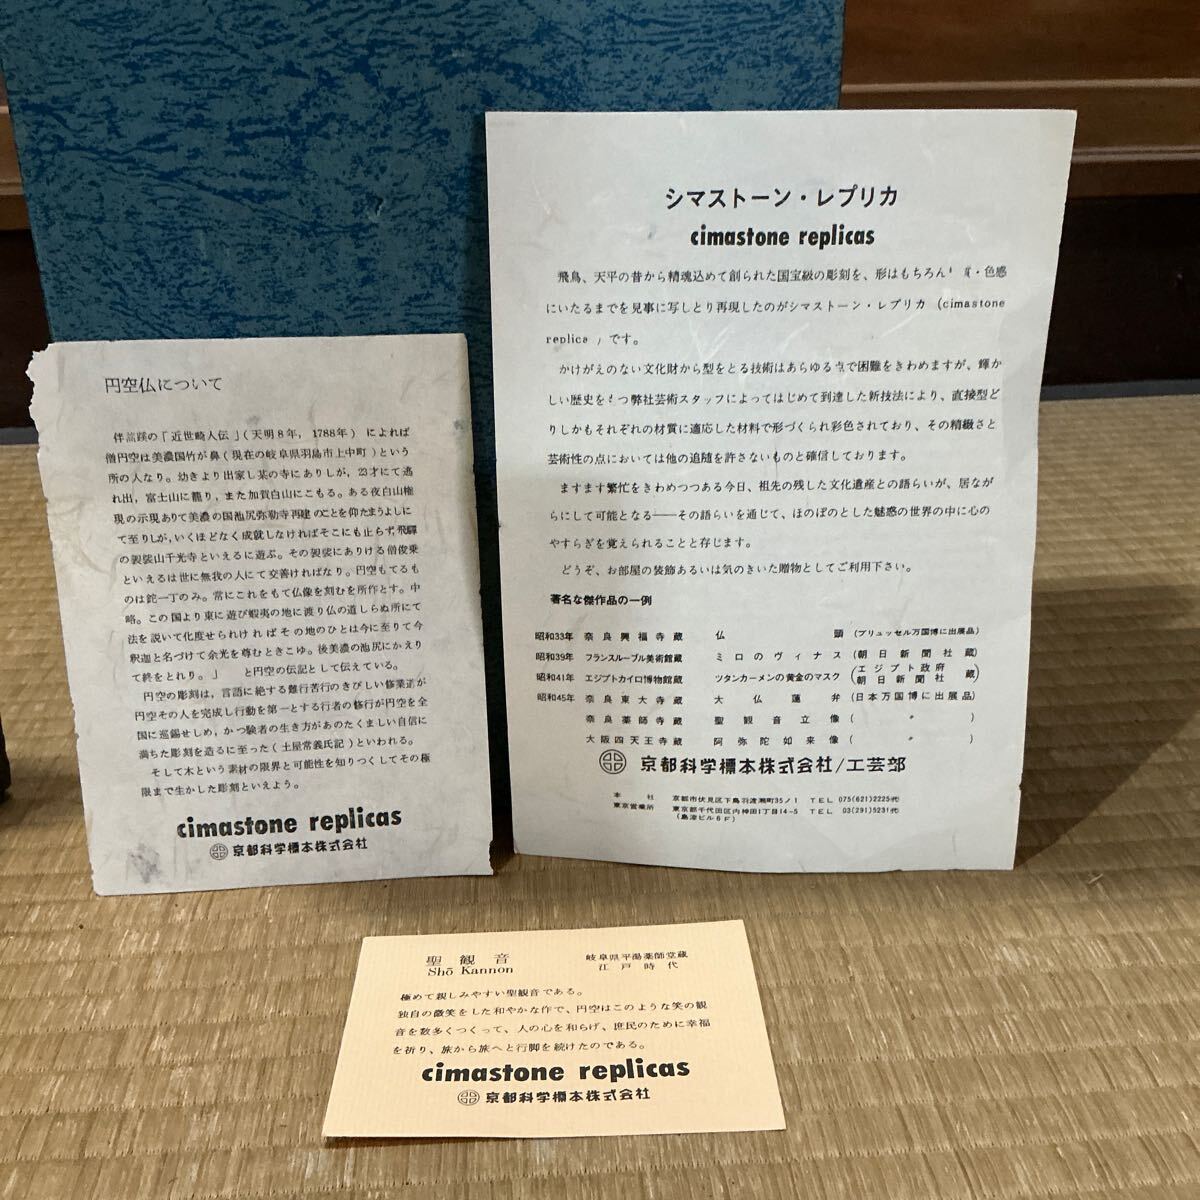 円空仏について
伴蒿蹊の「近世畸人伝」(天明8年，1788年) によれば
僧円空は美濃国竹が鼻(現在の岐阜県羽島市上中町)という
所の人なり。幼きより出家し某の寺にありしが，23才にて遁
れ出，富士山に籠り，また加賀白山にこもる。ある夜白山権
現の示現ありて美濃の国池尻弥勒寺再建のことを仰たまうよしに
て至りしが，いくほどなく成就しなければそこにも止らず，飛騨
の袈裟山千光寺といえるに遊ぶ。その袈裟にありける僧俊乗
といえるは世に無我の人にて交善ければなり。円空もてるも
のは鉈一丁のみ。常にこれをもて仏像を刻むを所作とす。中
略。この国より東に遊び蝦夷の地に渡り仏の道しらぬ所にて
法を説いて化度せられければその地のひとは今に至りて今
釈迦と名づけて余光を尊むときこゆ。後美濃の池尻にかえり
て終をとれり。」　と円空の伝記として伝えている。
円空の彫刻は，言語に絶する難行苦行のきびしい修業道が
円空その人を完成し行動を第一とする行者の修行が円空を全
国に巡錫せしめ，かつ験者の生き方があのたくましい自信に
満ちた彫刻を造るに至った(土屋常義氏記)といわれる。
そして木という素材の限界と可能性を知りつくしてその極
限まで生かした彫刻といえよう。
cimastone replicas
京都科学標本株式会社
シマストーン・レプリカ
cimastone replicas
飛鳥、天平の昔から精魂込めて創られた国宝級の彫刻を、形はもちろん 質・色感
にいたるまでを見事に写しとり再現したのがシマストーン・レプリカ (cimastone
replica ) です。
かけがえのない文化財から型をとる技術はあらゆる点で困難をきわめますが、輝か
しい歴史をもつ弊社芸術スタッフによってはじめて到達した新技法により、直接型ど
りしかもそれぞれの材質に適応した材料で形づくられ彩色されており、その精緻さと
芸術性の点においては他の追随を許さないものと確信しております。
ますます繁忙をきわめつつある今日、祖先の残した文化遺産との語らいが、居なが
らにして可能となる――その語らいを通じて、ほのぼのとした魅惑の世界の中に心の
やすらぎを覚えられることと存じます。
どうぞ、お部屋の装飾あるいは気のきいた贈物としてご利用下さい。
著名な傑作品の一例
昭和33年 奈良興福寺蔵 仏頭 (ブリュッセル万国博に出展品)
昭和39年 フランスルーブル美術館蔵 ミロのヴィナス (朝日新聞社蔵)
昭和41年 エジプトカイロ博物館蔵 ツタンカーメンの黄金のマスク (エジプト政府 朝日新聞社 蔵)
昭和45年 奈良東大寺蔵 大仏蓮弁 (日本万国博に出展品)
奈良薬師寺蔵 聖観音立像 ( 〃 )
大阪四天王寺蔵 阿弥陀如来像 ( 〃 )
京都科学標本株式会社/工芸部
本社 京都市伏見区下鳥羽渡瀬町35ノ1 TEL 075(621)2225㈹
東京営業所 東京都千代田区内神田1丁目14-5 TEL 03(291)5231㈹
(島津ビル6F)
聖観音
Shō Kannon
岐阜県平湯薬師堂蔵
江戸時代
極めて親しみやすい聖観音である。
独自の微笑をした和やかな作で、円空はこのような笑の観
音を数多くつくって、人の心を和らげ、庶民のために幸福
を祈り、旅から旅へと行脚を続けたのである。
cimastone replicas
京都科学標本株式会社